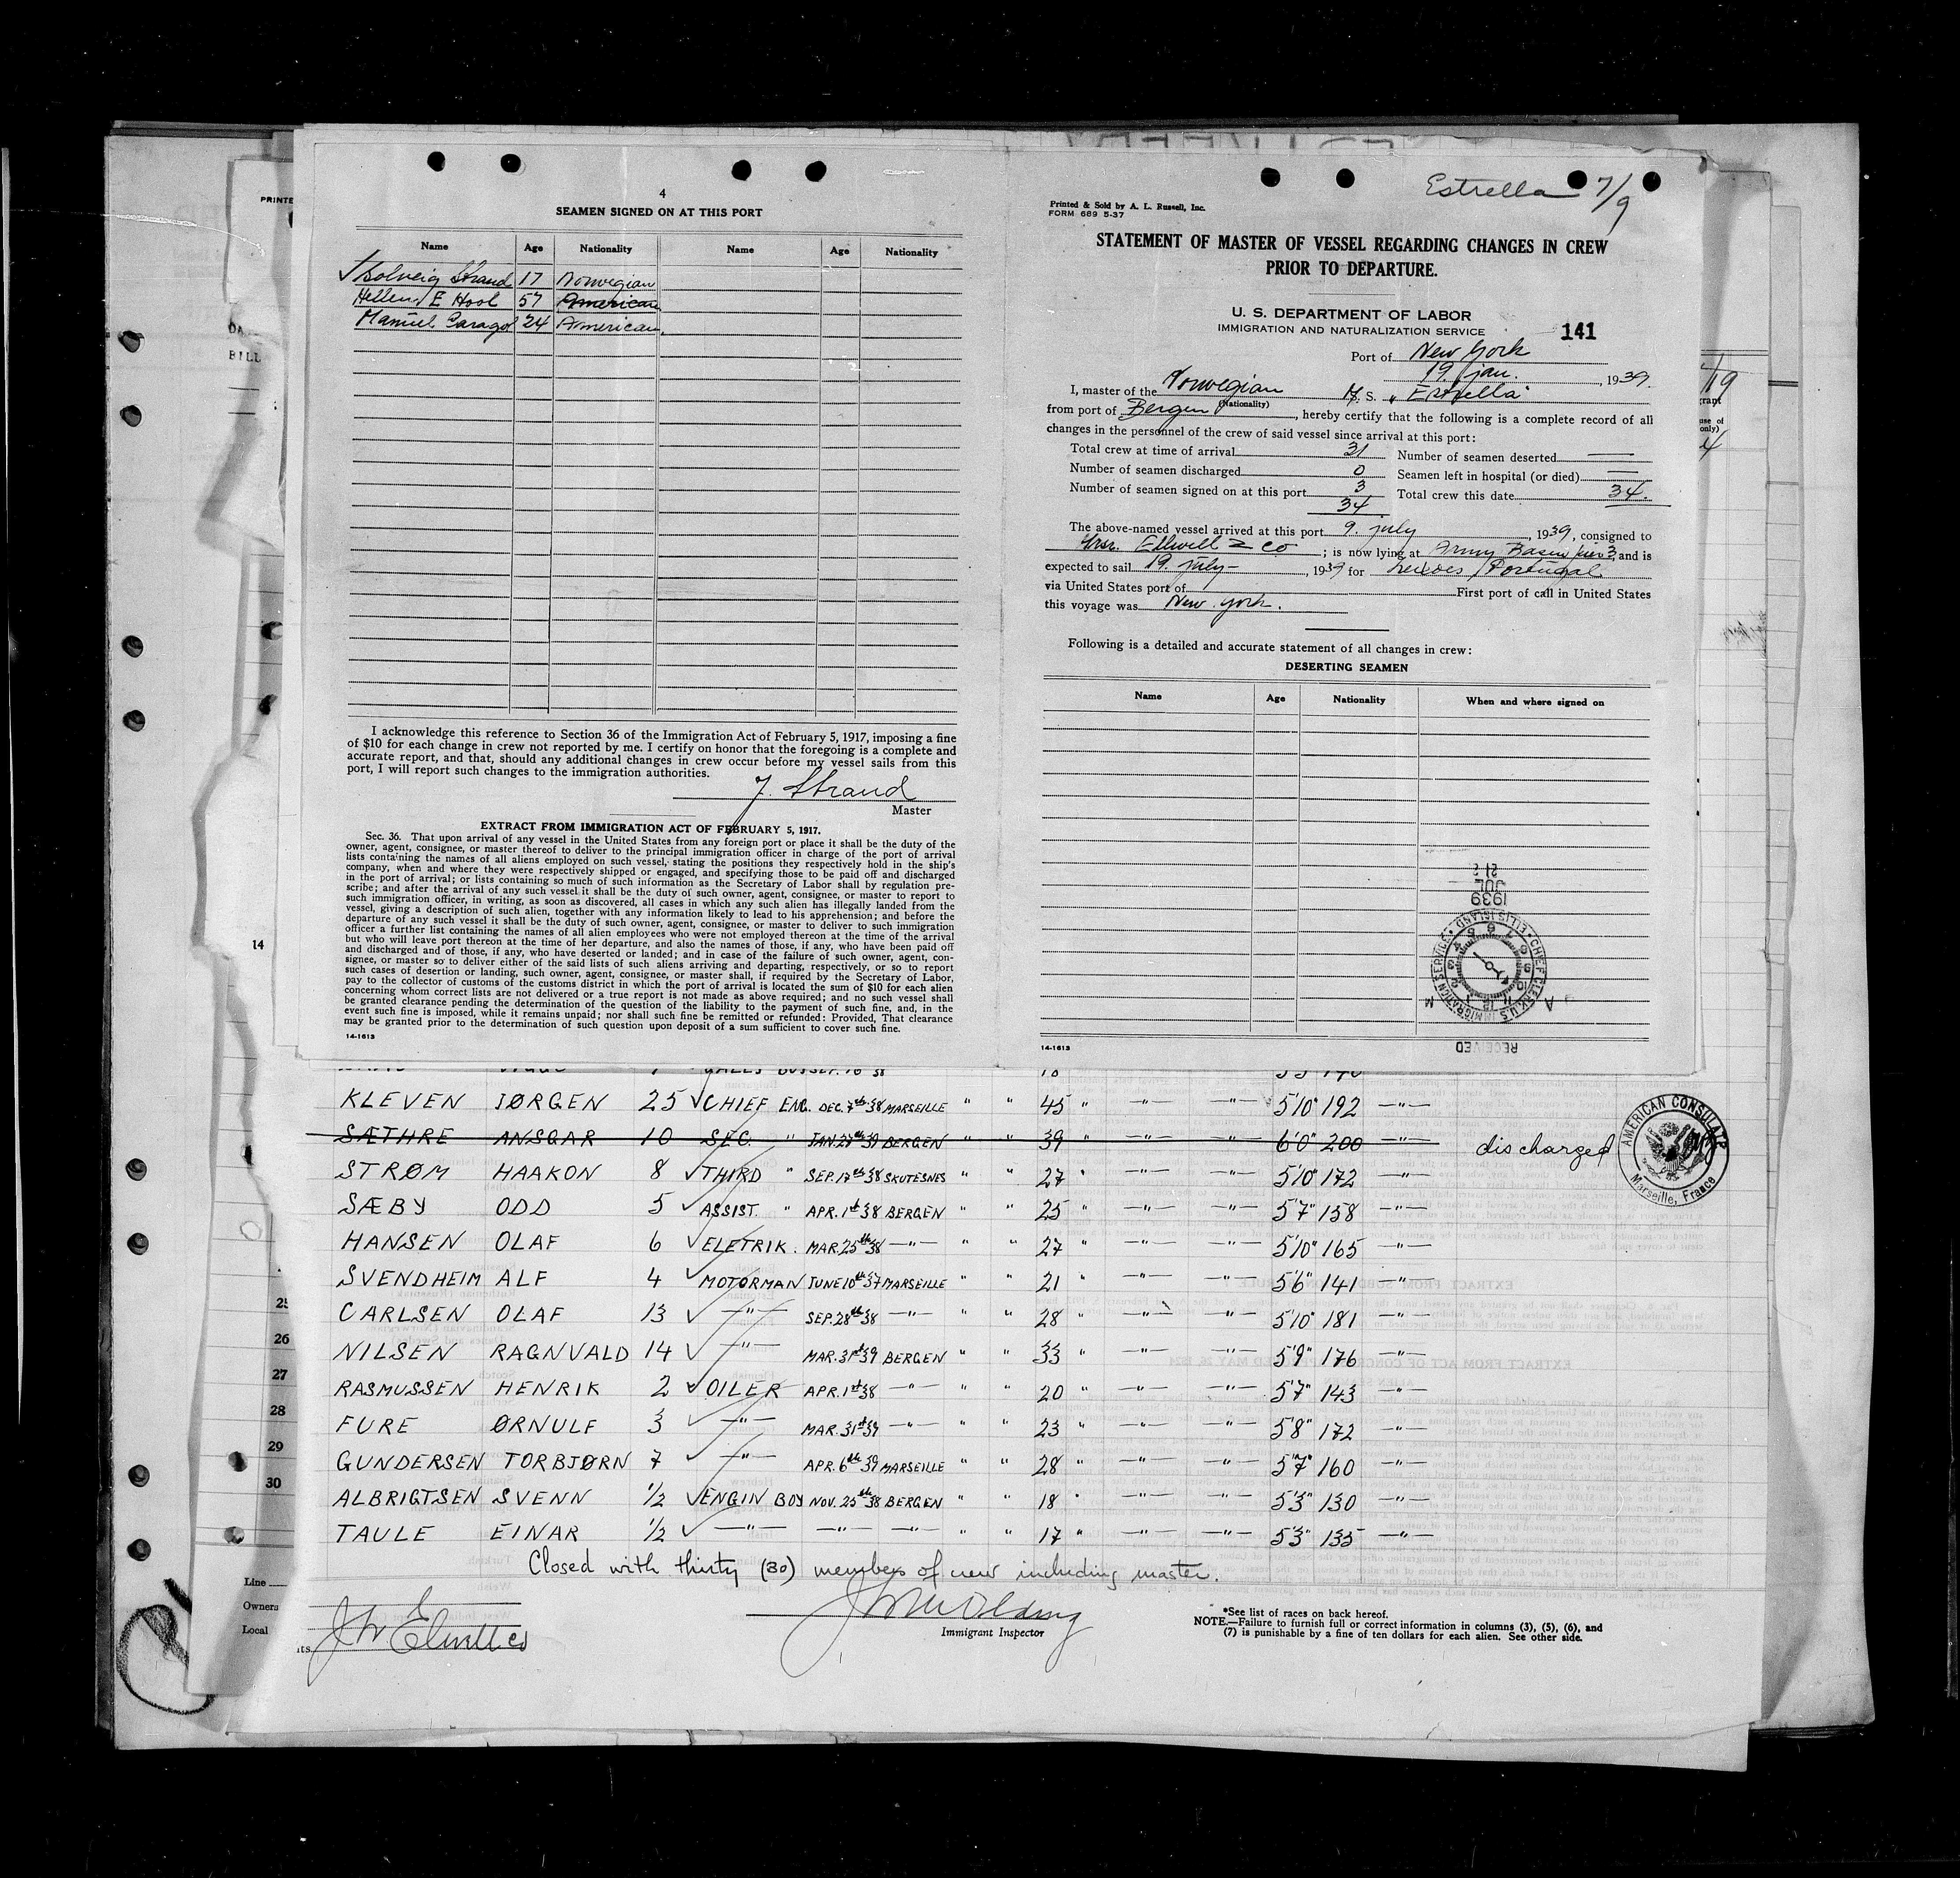 4
SEAMEN SIGNED ON AT THIS PORT
Name Age Nationality Name Age Nationality
Solveig Strand 17 Norwegian
Hellen E Hool 57 American
Manuel Carago 24 American
I acknowledge this reference to Section 36 of the Immigration Act of February 5, 1917, imposing a fine
of $10 for each change in crew not reported by me. I certify on honor that the foregoing is a complete and
accurate report, and that, should any additional changes in crew occur before my vessel sails from this
port, I will report such changes to the immigration authorities.
J. Strand
Master
EXTRACT FROM IMMIGRATION ACT OF FEBRUARY 5, 1917.
Sec. 36. That upon arrival of any vessel in the United States from any foreign port or place it shall be the duty of the
owner, agent, consignee, or master thereof to deliver to the principal immigration officer in charge of the port of arrival
lists containing the names of all aliens employed on such vessel, stating the positions they respectively hold in the ship's
company, when and where they were respectively shipped or engaged, and specifying those to be paid off and discharged
in the port of arrival; or lists containing so much of such information as the Secretary of Labor shall by regulation pre-
scribe; and after the arrival of any such vessel it shall be the duty of such owner, agent, consignee, or master to report to
such immigration officer, in writing, as soon as discovered, all cases in which any such alien has illegally landed from the
vessel, giving a description of such alien, together with any information likely to lead to his apprehension; and before the
departure of any such vessel it shall be the duty of such owner, agent, consignee, or master to deliver to such immigration
officer a further list containing the names of all alien employees who were not employed thereon at the time of the arrival
but who will leave port thereon at the time of her departure, and also the names of those, if any, who have been paid off
and discharged and of those, if any, who have deserted or landed; and in case of the failure of such owner, agent, con-
signee, or master so to deliver either of the said lists of such aliens arriving and departing, respectively, or so to report
such cases of desertion or landing, such owner, agent, consignee, or master shall, if required by the Secretary of Labor,
pay to the collector of customs of the customs district in which the port of arrival is located the sum of $10 for each alien
concerning whom correct lists are not delivered or a true report is not made as above required; and no such vessel shall
be granted clearance pending the determination of the question of the liability to the payment of such fine, and, in the
event such fine is imposed, while it remains unpaid; nor shall such fine be remitted or refunded: Provided, That clearance
may be granted prior to the determination of such question upon deposit of a sum sufficient to cover such fine.
14-1613
Estrella 7/9
Printed & Sold by A. L. Russell, Inc.
FORM 689 5-37
STATEMENT OF MASTER OF VESSEL REGARDING CHANGES IN CREW
PRIOR TO DEPARTURE.
U. S. DEPARTMENT OF LABOR
IMMIGRATION AND NATURALIZATION SERVICE
141
Port of New York
19. jan., 1939.
I, master of the Norwegian M. S. "Estrella"
(Nationality)
from port of Bergen, hereby certify that the following is a complete record of all
changes in the personnel of the crew of said vessel since arrival at this port:
Total crew at time of arrival 31 Number of seamen deserted —
Number of seamen discharged 0 Seamen left in hospital (or died) —
Number of seamen signed on at this port 3 Total crew this date 34.
34
The above-named vessel arrived at this port 9. july, 1939, consigned to
Mssr. Ellwell & Co; is now lying at Army Basin pier 3, and is
expected to sail 19. july -, 1939 for Leixoes / Portugal.
via United States port of First port of call in United States
this voyage was New york.
Following is a detailed and accurate statement of all changes in crew:
DESERTING SEAMEN
Name Age Nationality When and where signed on
1939
JUL
21
CHIEF FILES U.S. IMMIGRATION SERVICE • ELLIS ISLAND
A M
RECEIVED
14-1613
PRINTE
BILL
14
KLEVEN JØRGEN 25 CHIEF ENG. DEC. 7th 38 MARSEILLE " " 45 " —"— —"— 5'10" 192 —"—
SÆTHRE ANSGAR 10 SEC. " JAN. 27th 39 BERGEN 39 6'0" 200 —"— discharged
AMERICAN CONSULATE
Marseille, France
STRØM HAAKON 8 THIRD " SEP. 17th 38 SKUTESNES " " 27 " —"— —"— 5'10" 172 —"—
SÆBY ODD 5 ASSIST. " APR. 1st 38 BERGEN " " 25 " —"— —"— 5'7" 158 —"—
HANSEN OLAF 6 ELETRIK. MAR. 25th 38 —"— " " 27 " —"— —"— 5'10" 165 —"—
SVENDHEIM ALF 4 MOTORMAN JUNE 10th 37 MARSEILLE " " 21 " —"— —"— 5'6" 141 —"—
25 CARLSEN OLAF 13 —"— SEP. 28th 38 —"— " " 28 " —"— —"— 5'10" 181 —"—
26 NILSEN RAGNVALD 14 —"— MAR. 31st 39 BERGEN " " 33 " —"— —"— 5'9" 176 —"—
27 RASMUSSEN HENRIK 2 OILER APR. 1st 38 —"— " " 20 " —"— —"— 5'7" 143 —"—
28 FURE ØRNULF 3 —"— MAR. 31st 39 —"— " " 23 " —"— —"— 5'8" 172 —"—
29 GUNDERSEN TORBJØRN 7 —"— APR. 6th 39 MARSEILLE " " 28 " —"— —"— 5'7" 160 —"—
30 ALBRIGTSEN SVENN 1/2 ENGIN BOY NOV. 25th 38 BERGEN " " 18 " —"— —"— 5'3" 130 —"—
TAULE EINAR 1/2 —"— —"— —"— " " 17 " —"— —"— 5'3" 135 —"—
Closed with thirty (30) members of crew including master.
Line
Owners
Local
Immigrant Inspector
*See list of races on back hereof.
NOTE.—Failure to furnish full or correct information in columns (3), (5), (6), and
(7) is punishable by a fine of ten dollars for each alien. See other side.